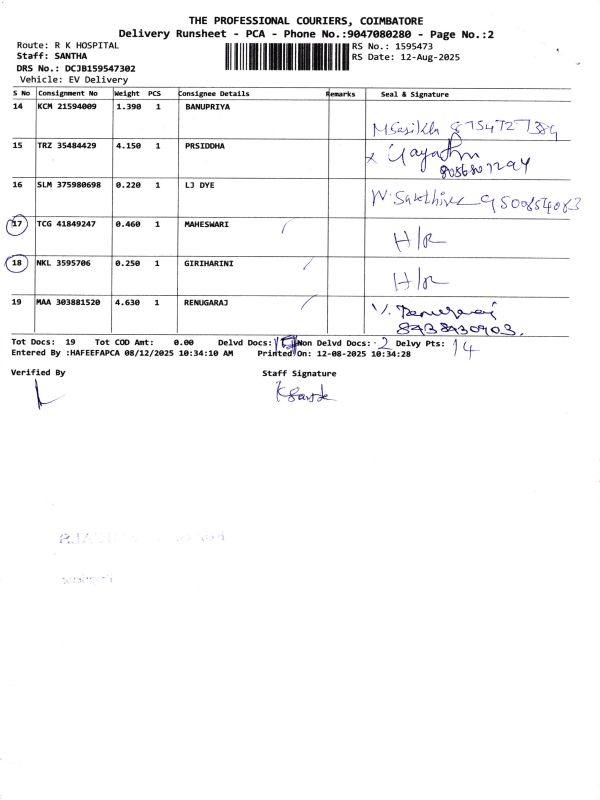 THE PROFESSIONAL COURIERS, COIMBATORE
Delivery Runsheet - PCA - Phone No.:9047080280 - Page No.:2
Route: R K HOSPITAL
RS No.: 1595473
Staff: SANTHA
RS Date: 12-Aug-2025
DRS No.: DCJB159547302
Vehicle: EV Delivery
S No Consignment No Weight PCS Consignee Details Remarks Seal & Signature
14 KCM 21594009 1.390 1 BANUPRIYA
15 TRZ 35484429 4.150 1 PRSIDDHA
16 SLM 375980698 0.220 1 LJ DYE
17 TCG 41849247 0.460 1 MAHESWARI H/R
18 NKL 3595706 0.250 1 GIRIHARINI H/R
19 MAA 303881520 4.630 1 RENUGARAJ
Tot Docs: 19 Tot COD Amt: 0.00 Delvd Docs: Non Delvd Docs: 2 Delvy Pts: 14
Entered By :HAFEEFAPCA 08/12/2025 10:34:10 AM Printed On: 12-08-2025 10:34:28
Verified By Staff Signature